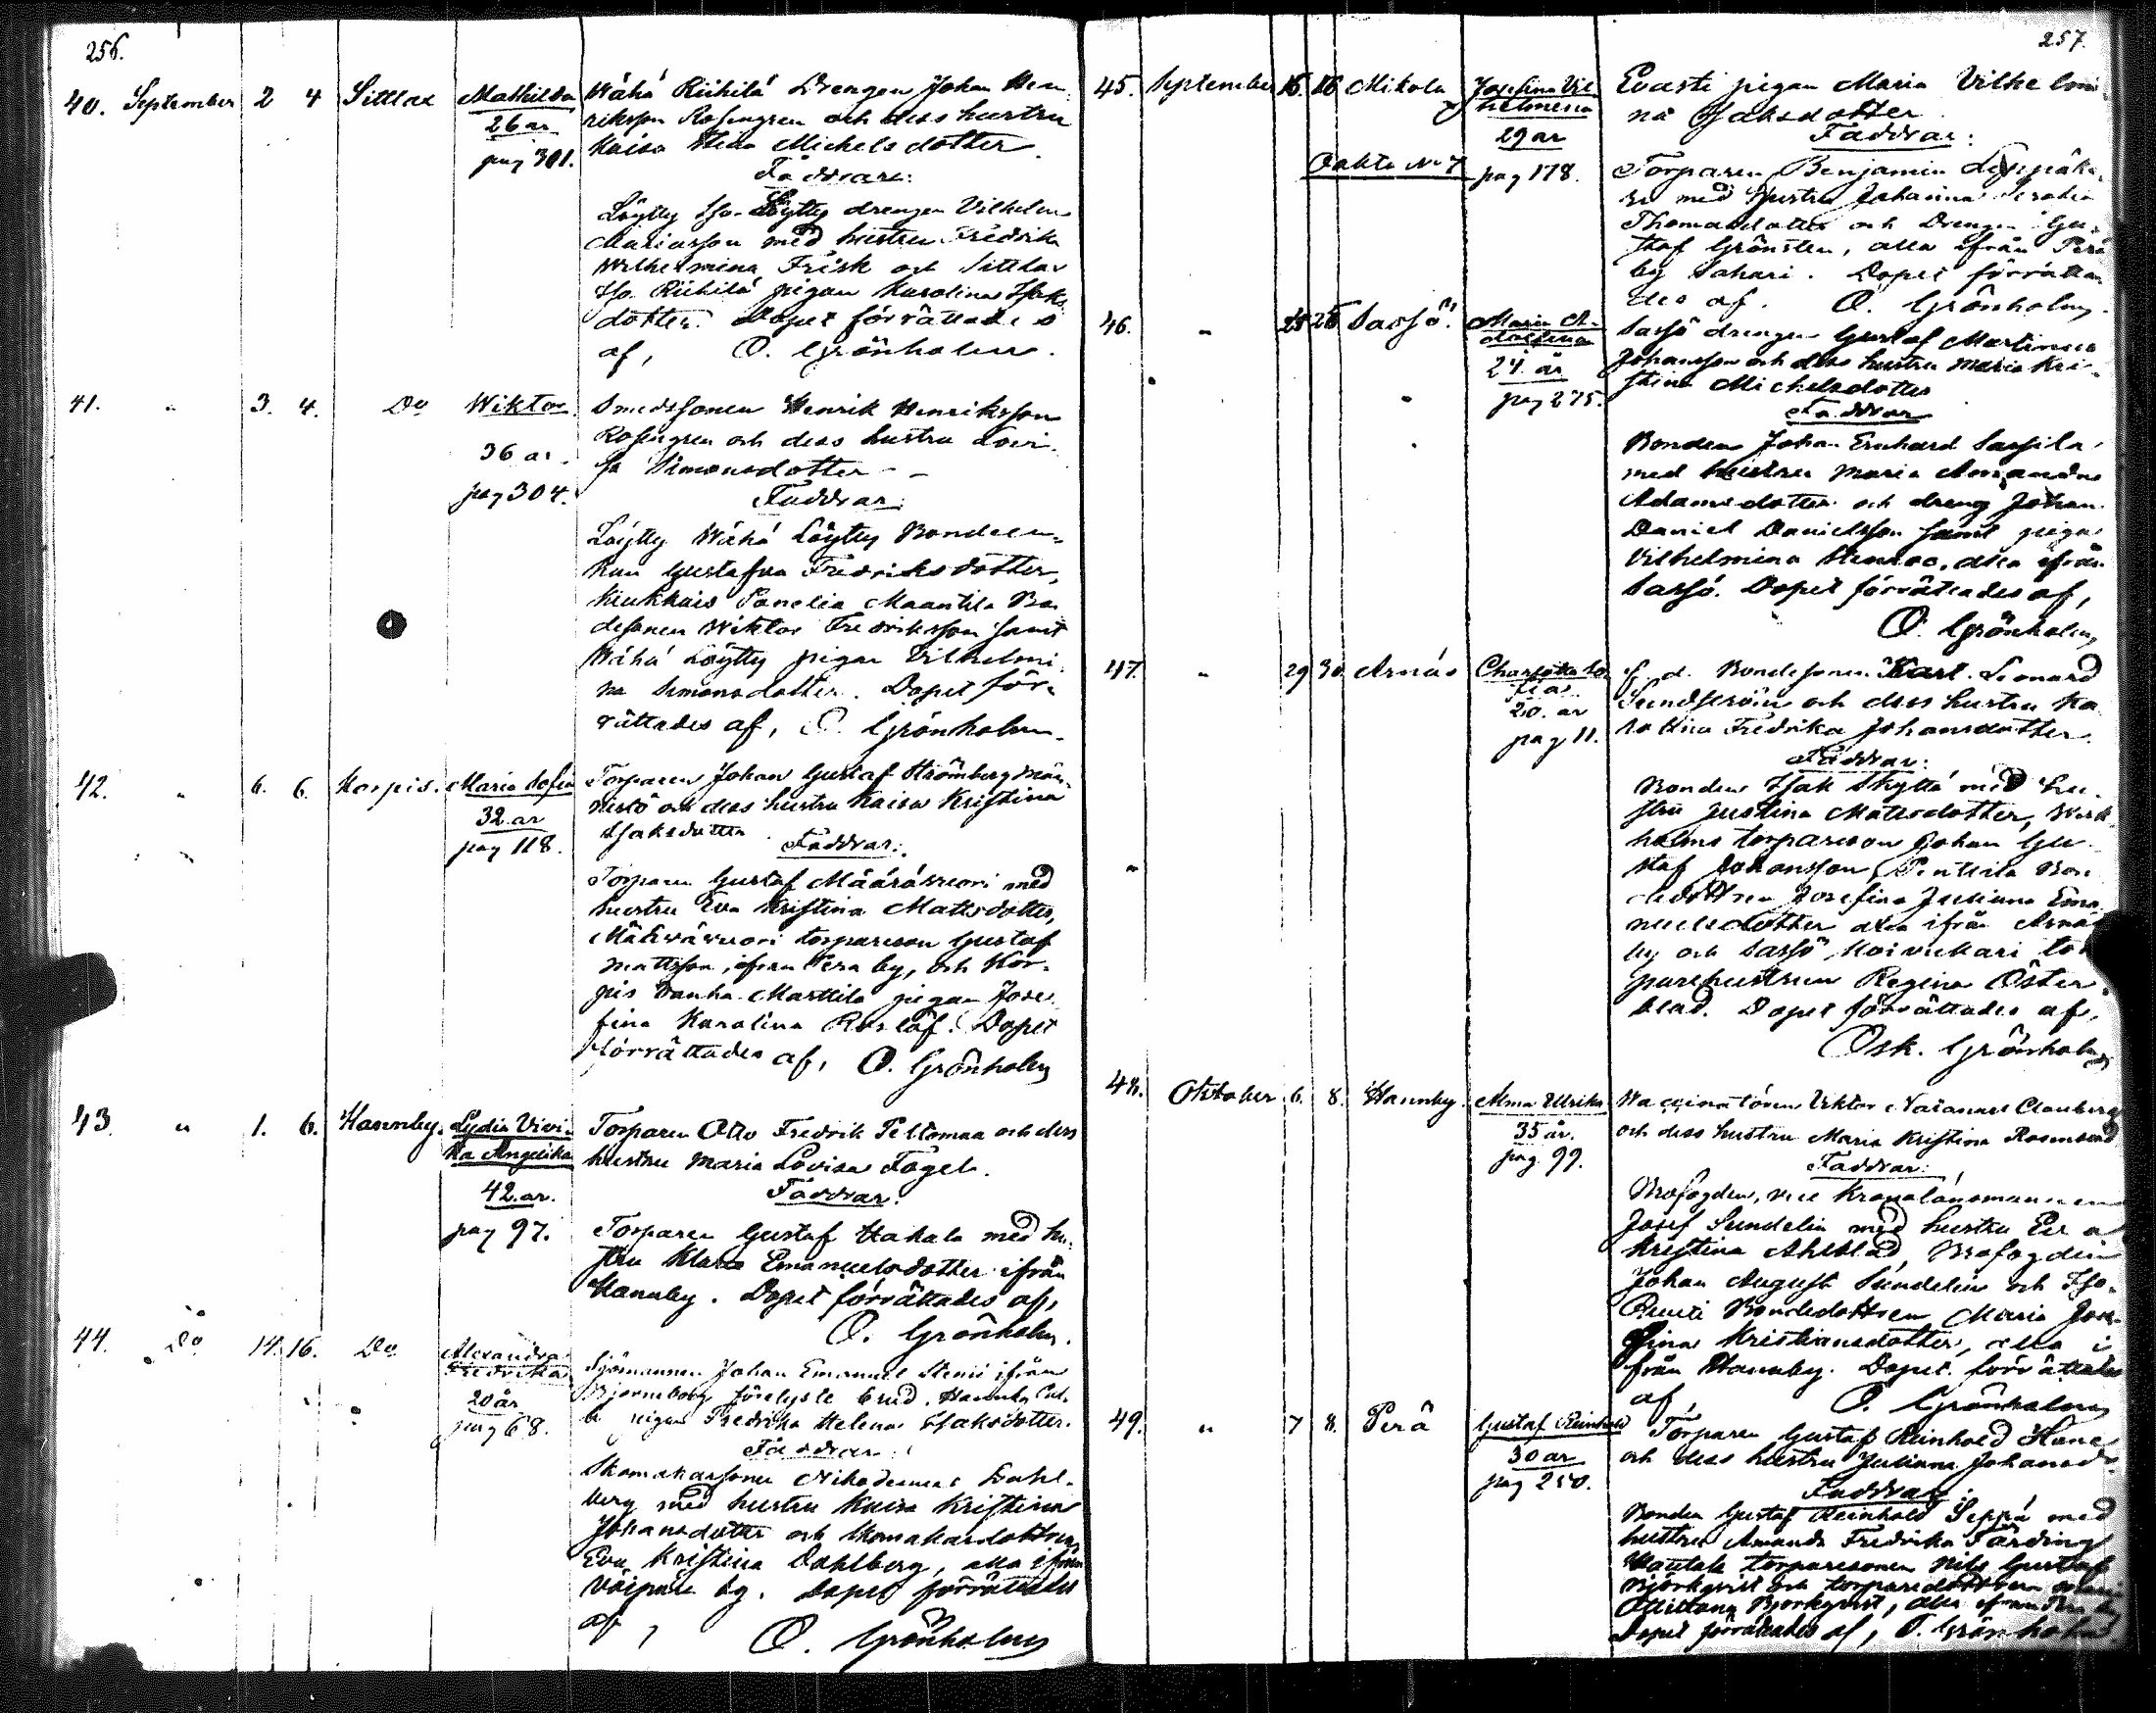 256.
40. September 2 4 Sittlax Mathilda Wähä Riihilä Drengen Johan Hen-
26 år riksson Rosengren och dess hustru
pag 301. Kaisa Stina Michelsdotter.
Faddrar:
Löytty Iso-Löytty drengen Vilhelm
Mariasson med hustru Fredrika
Wilhelmina Frisk och Sittlax
Iso Riihilä pigan Karolina Isaks
dotter. Dopet förrättades
af, O. Grönholm.
41. " 3. 4. Do Wiktor Smedssonen Henrik Henriksson
36 år. Rosengren och dess hustru Lovi-
sa Simonsdotter
pag 304. Faddrar:
Löytty Wähä Löytty Bondeen-
kan Gustafva Fredriksdotter,
Kiukkais Panelia Maantila Bon
desonen Wiktor Fredriksson samt
Wähä Löytty pigan Vilhelmi-
na Simonsdotter. Dopet för-
rättades af, O. Grönholm.
42. " 6. 6. Korpis. Maria Sofia Torparen Johan Gustaf Strömberg Män-
32 år nistö och dess hustru Kaisa Kristina
pag 118. Isaksdotter
Faddrar:
Torparen Gustaf Määrävuori med
hustru Eva Kristina Mattsdotter,
Määrävuori torpareson Gustaf
Mattsson, ifrån Perä by, och Kor-
pis Vanha-Marttila pigan Jose-
fina Karolina Roslöf. Dopet
förrättades af, O. Grönholm
43. " 1. 6. Hannby. Lydia Vivi- Torparen Otto Fredrik Peltomaa och dess
ka Angelika hustru Maria Lovisa Fogel.
42 år. Faddrar:
pag 97. Torparen Gustaf Hakala med hu-
stru Maria Emanuelsdotter ifrån
Hannby. Dopet förrättades af,
O. Grönholm.
44. Do 14. 16. Do Alexandra Sjömannen Johan Emanuel Stenii ifrån
Fredrika Björneborg förelyste brud, Hannby
20 år pigan Fredrika Helena Isaksdotter.
pag 68. Faddrar:
Skomakarsonen Nikodemus Dahl-
berg med hustru Kaisa Kristina
Johansdotter och Skomakardottren
Eva Kristina Dahlberg, alla ifrån
by. Dopet förrättades
af, O. Grönholm
257.
45. September 15. 16 Mikola Josefina Vil- Evasti pigan Maria Vilhelmi-
helmina na Jaksdotter
29 år Faddrar:
No 7 pag 178. Torparen Benjamin Leppäka-
ri med hustru Johanna Serafia
Thomasdotter och Drengen Gu-
staf Grönsten, alla ifrån Perä
by Sahari. Dopet förrättа-
des af. O. Grönholm.
46. " 25 26 Sassjö. Maria A- Sassjö drengen Gustaf Martinus
dolfina Johansson och dess hustru Maria Kri-
24 år stina Michelsdotter
pag 275. Faddrar
Bonden Johan Ernhard Sassila
med hustru Maria Amanda
Adamsdotter och dreng Johan
Daniel Danielsson samt piga
Vilhelmina alla ifrån
Sassjö. Dopet förrättades af,
O. Grönholm
47. " 29 30 Arnäs Charlotta So- f. d. Bondesonen Karl Leonard
fia. Sundström och dess hustru Ka
20. år rolina Fredrika Johansdotter.
pag 11. Faddrar:
Bonden Isak Skyttä med hu-
stru Justina Mattsdotter,
holms torpareson Johan Gu-
staf Johansson, Penttila Bon
dedottren Josefina Juliana Ema
nuelsdotter alla ifrån Arnäs
by och Sassjö Koivukari tor
parehustrun Regina Öster
blad. Dopet förrättades af,
Osk. Grönholm
48. Oktober 6. 8. Hannby. Alma Ulrika Vaccinatören Viktor Clauberg
35 år. och dess hustru Maria Kristina
pag. 99. Faddrar:
Brofogden, vice Kronolänsmannen
Josef Sundelin med hustru Eva
Kristina Ahlblad, Brofogden
Johan August Sundelin och Iso-
Bondedottren Maria Jose-
fina Kristiansdotter, alla i-
från Hannby. Dopet förrättades
af, O. Grönholm
49. " 7 8. Perä Gustaf Reinhold Torparen Gustaf Reinhold
30 år och dess hustru Juliana Johansd.
pag 250. Faddrar
Bonden Gustaf Reinhold Seppä med
hustru Amanda Fredrika Färding
torparesonen Nils Gustaf
Björkqvist och torparedottren
Björkqvist, alla ifrån Perä by
Dopet förrättades af, O. Grönholm.